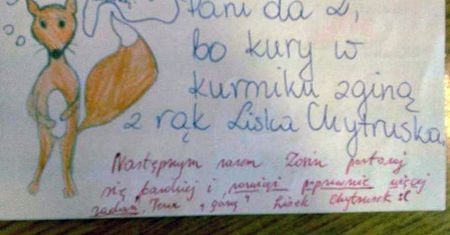 Pani da 2,
bo kury w
kurniku zginą
z rąk Liska Chytruska.
Następnym razem Zosiu postaraj
się bardziej i rozwiąż poprawnie więcej
zadań. Teraz "górą" Lisek Chytrusek :(